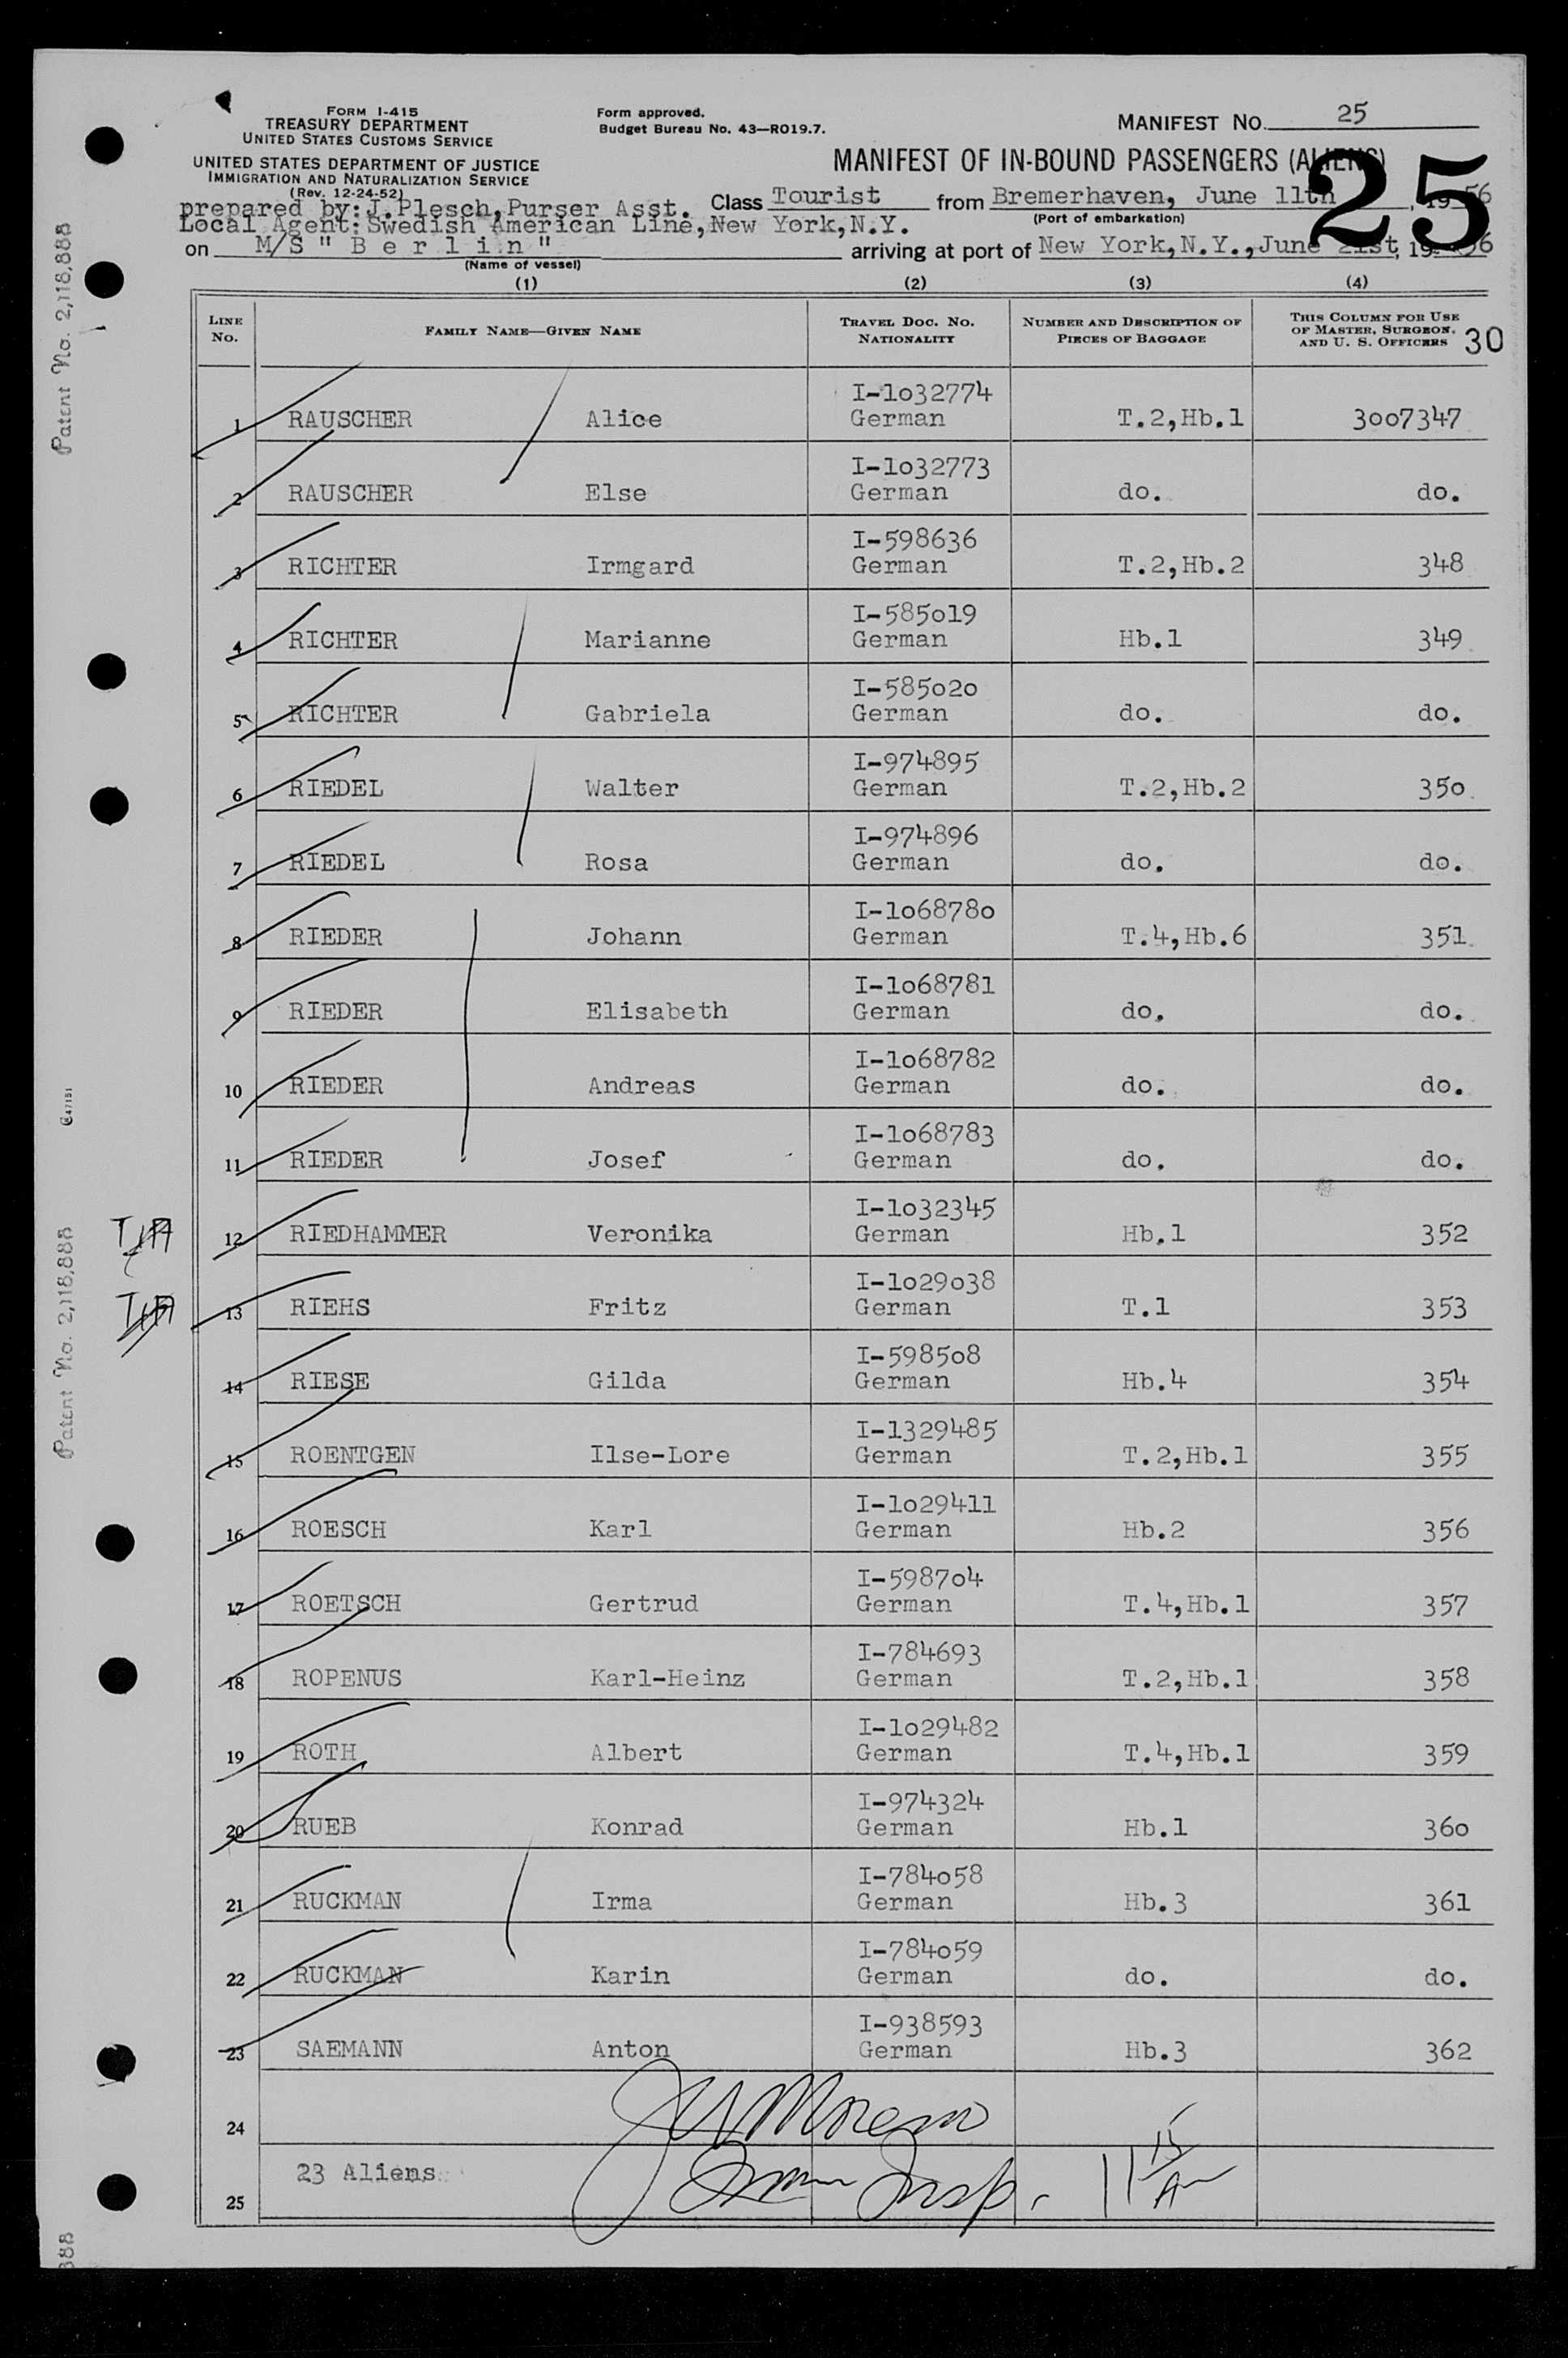 FORM I-415
TREASURY DEPARTMENT
UNITED STATES CUSTOMS SERVICE
UNITED STATES DEPARTMENT OF JUSTICE
IMMIGRATION AND NATURALIZATION SERVICE
(Rev. 12-24-52)
Form approved.
Budget Bureau No. 43—RO19.7.
MANIFEST NO. 25
MANIFEST OF IN-BOUND PASSENGERS (ALIENS)
25
prepared by: J.Plesch, Purser Asst. Class Tourist from Bremerhaven, June 11th, 1956
(Port of embarkation)
Local Agent: Swedish American Line, New York, N.Y.
on M/S " B e r l i n " arriving at port of New York, N.Y., June 21st, 1956
(Name of vessel)
(1) (2) (3) (4)
LINE NO. FAMILY NAME—GIVEN NAME TRAVEL DOC. NO. NATIONALITY NUMBER AND DESCRIPTION OF PIECES OF BAGGAGE THIS COLUMN FOR USE OF MASTER, SURGEON, AND U. S. OFFICERS 30
I-1o32774
1 RAUSCHER Alice German T.2,Hb.1 3oo7347
I-1o32773
2 RAUSCHER Else German do. do.
I-598636
3 RICHTER Irmgard German T.2,Hb.2 348
I-585o19
4 RICHTER Marianne German Hb.1 349
I-585o2o
5 RICHTER Gabriela German do. do.
I-974895
6 RIEDEL Walter German T.2,Hb.2 35o
I-974896
7 RIEDEL Rosa German do. do.
I-1o6878o
8 RIEDER Johann German T.4,Hb.6 351
I-1o68781
9 RIEDER Elisabeth German do. do.
I-1o68782
10 RIEDER Andreas German do. do.
I-1o68783
11 RIEDER Josef German do. do.
I-1o32345
12 RIEDHAMMER Veronika German Hb.1 352
I-1o29o38
13 RIEHS Fritz German T.1 353
I-5985o8
14 RIESE Gilda German Hb.4 354
I-1329485
15 ROENTGEN Ilse-Lore German T.2,Hb.1 355
I-1o29411
16 ROESCH Karl German Hb.2 356
I-5987o4
17 ROETSCH Gertrud German T.4,Hb.1 357
I-784693
18 ROPENUS Karl-Heinz German T.2,Hb.1 358
I-1o29482
19 ROTH Albert German T.4,Hb.1 359
I-974324
20 RUEB Konrad German Hb.1 36o
I-784o58
21 RUCKMAN Irma German Hb.3 361
I-784o59
22 RUCKMAN Karin German do. do.
I-938593
23 SAEMANN Anton German Hb.3 362
24
23 Aliens
25
Insp.
Patent No. 2,118,888
Patent No. 2,118,888
888